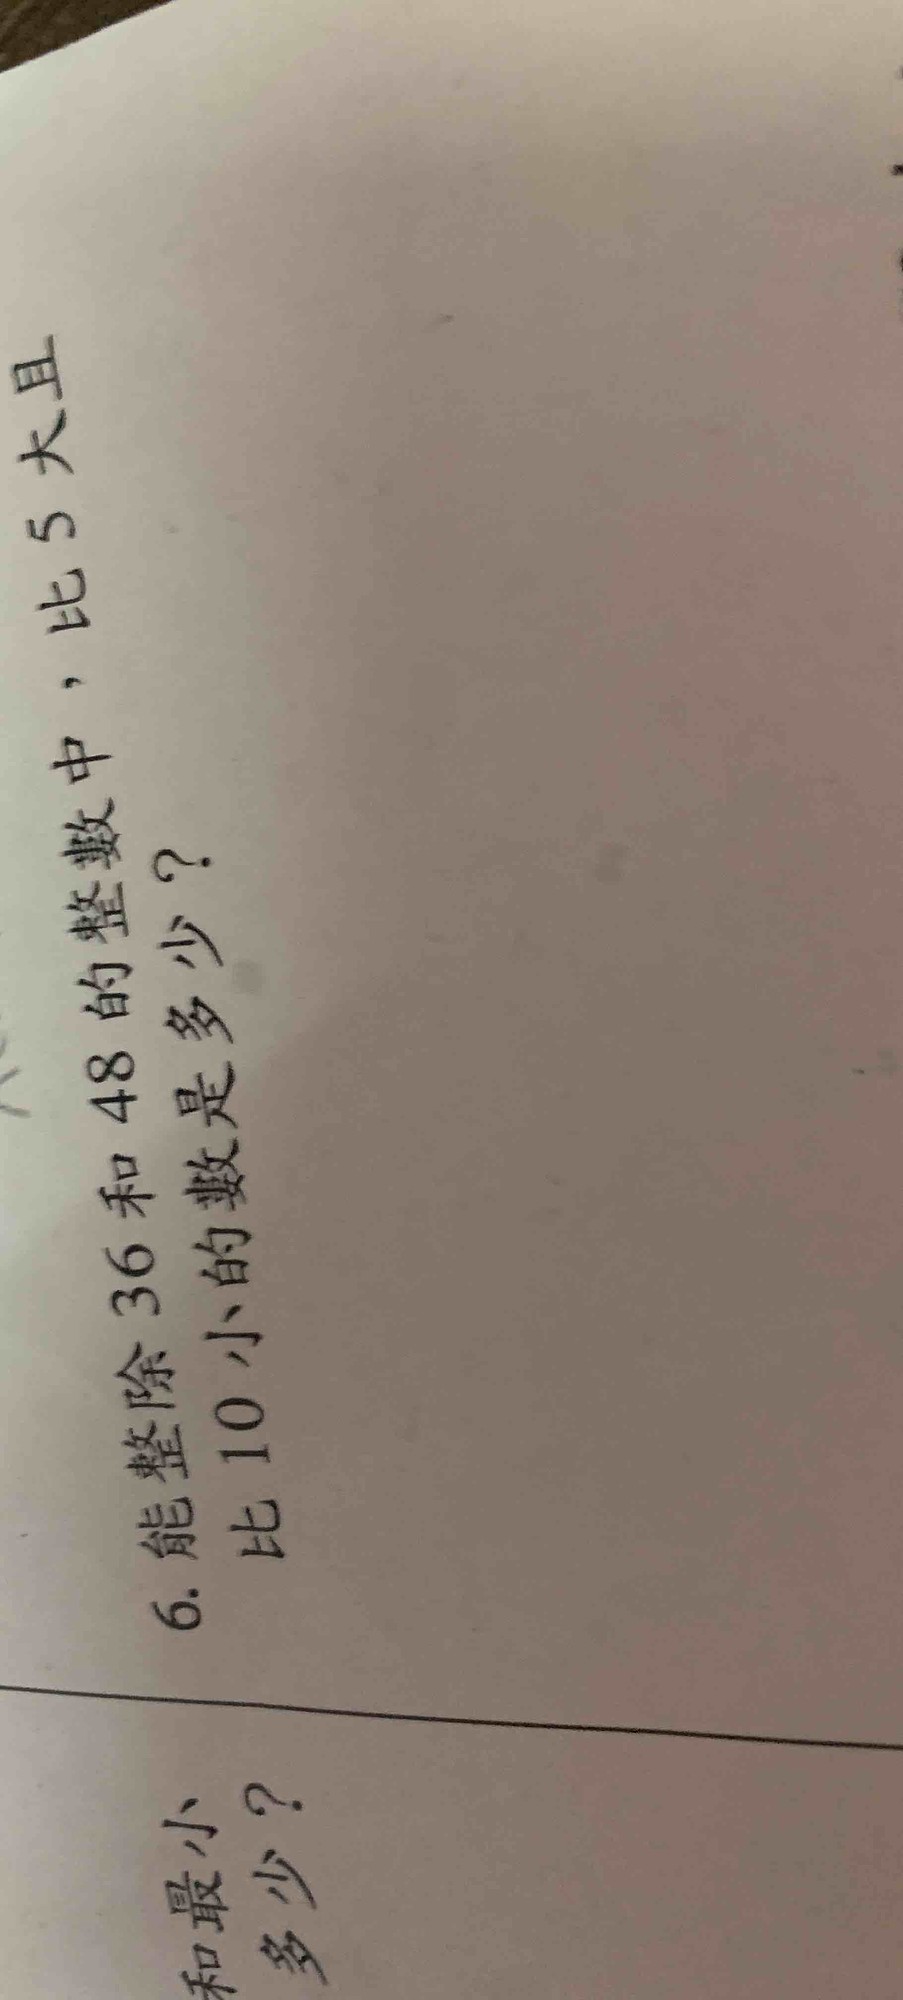 6. 能整除 36 和 48 的整數中，比 5 大且
比 10 小的數是多少？
和最小
多少？